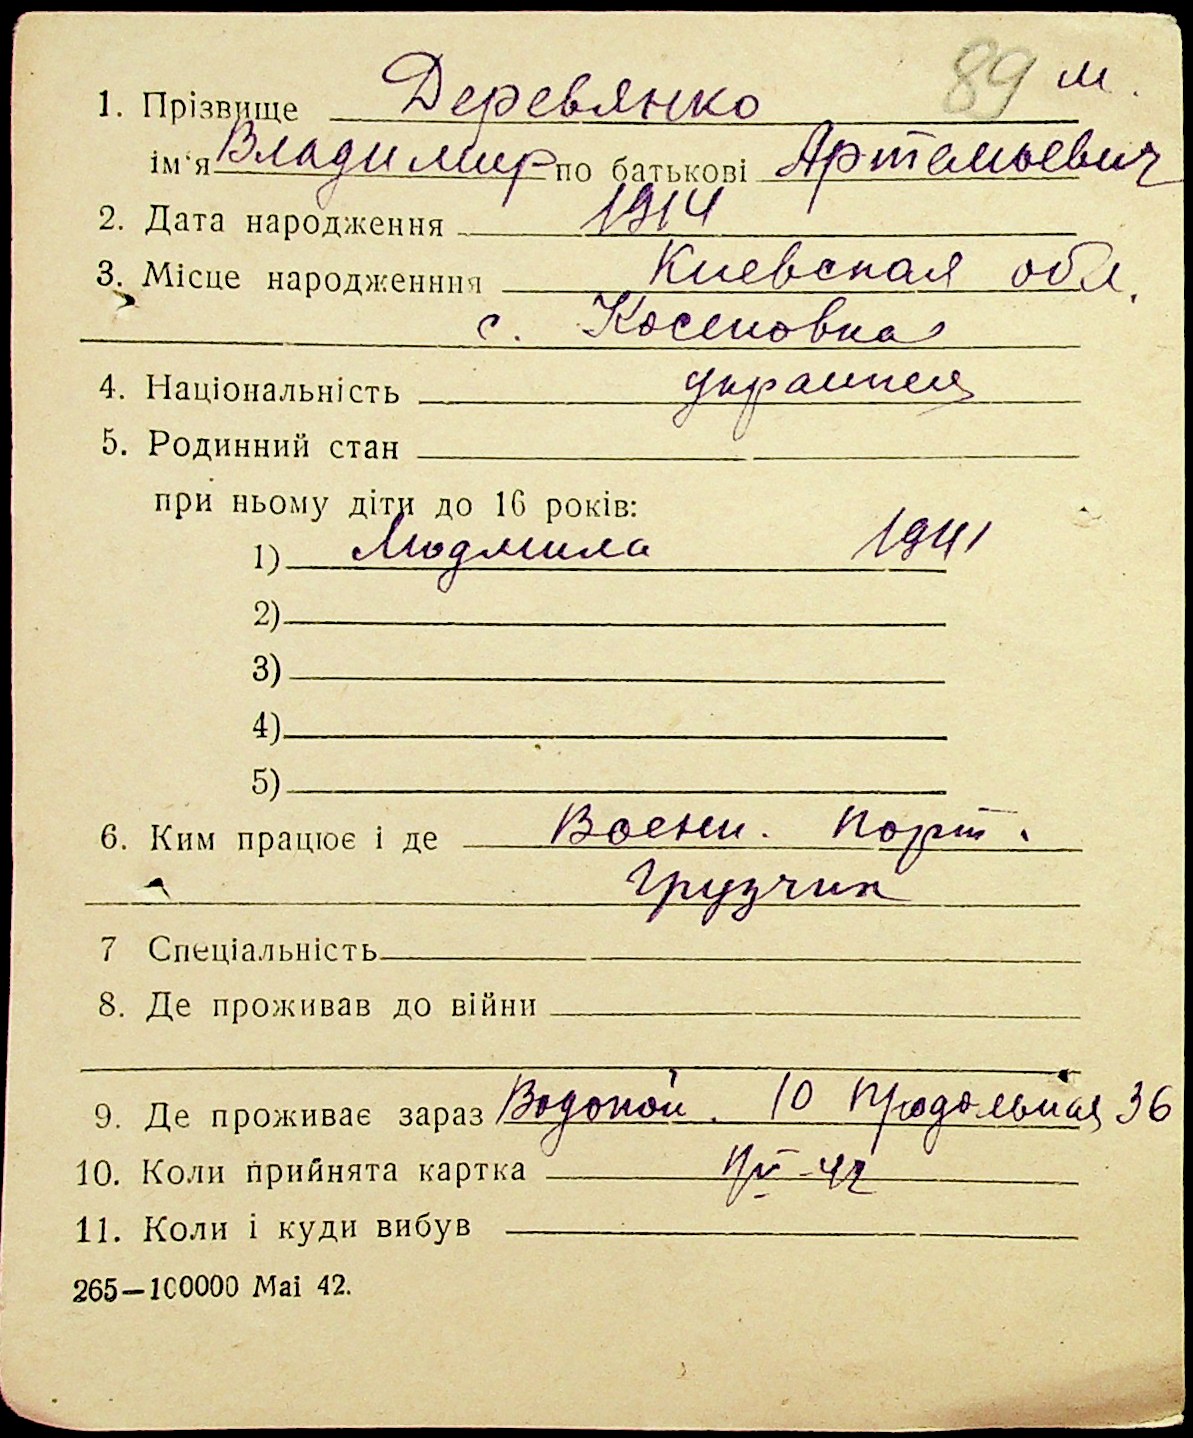 89 м.
1. Прізвище Деревянко
ім'я Владимир по батькові Артемьевич
2. Дата народження 1914
3. Місце народженння Киевская обл.
с. Косеновка
4. Національність украинец
5. Родинний стан
при ньому діти до 16 років:
1) Людмила 1941
2)
3)
4)
5)
6. Ким працює і де Воени. порт.
Грузчик
7 Спеціальність
8. Де проживав до війни
9. Де проживає зараз Водопой. 10 Продольная 36
10. Коли прийнята картка 42
11. Коли і куди вибув
265—100000 Mai 42.